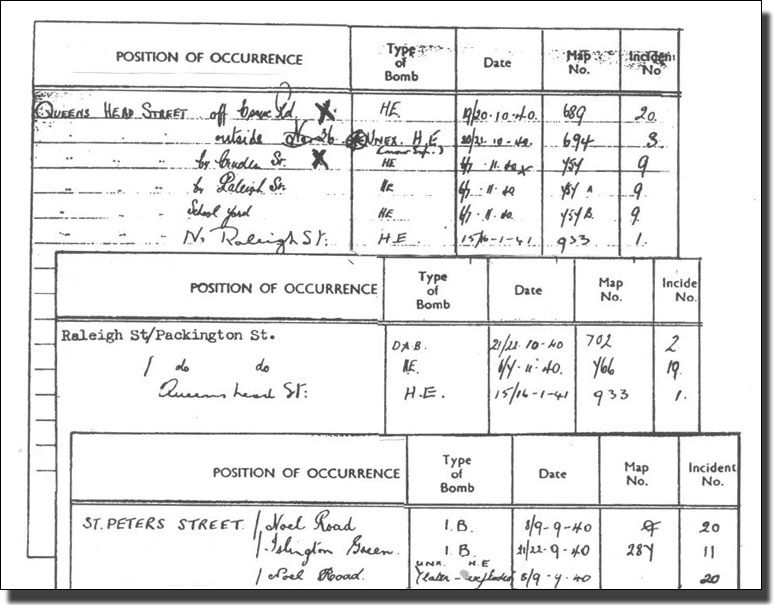 POSITION OF OCCURRENCE Type of Bomb Date Map No. Incident No
QUEENS HEAD STREET off Rd. X. HE 19/20.10.40. 689 20.
" " " outside No. 36 UNEX. H.E 20/21.10.40. 694 3.
" " " by Cruden St. X HE 6/7.11.40 x 454 9
" " " by Raleigh St. HE 6/7.11.40 454 A 9
" " " School yard HE 6/7.11.40. 454 B. 9.
" " " Nr Raleigh ST. H.E 15/16-1-41 933 1.
POSITION OF OCCURRENCE Type of Bomb Date Map No. Incide No.
Raleigh St/Packington St. D.A.B. 21/22.10.40 702 2
/ do do HE. .11.40. 466 19.
Queens head St: H.E. 15/16-1-41 933 1.
POSITION OF OCCURRENCE Type of Bomb Date Map No. Incident No.
ST. PETERS STREET / Noel Road I.B. 8/9-9-40 20
/ Islington Green. I.B. 21/22.9.40 284 11
/ Noel Road. UNX. H.E (later exploded) 8/9-9-40 20